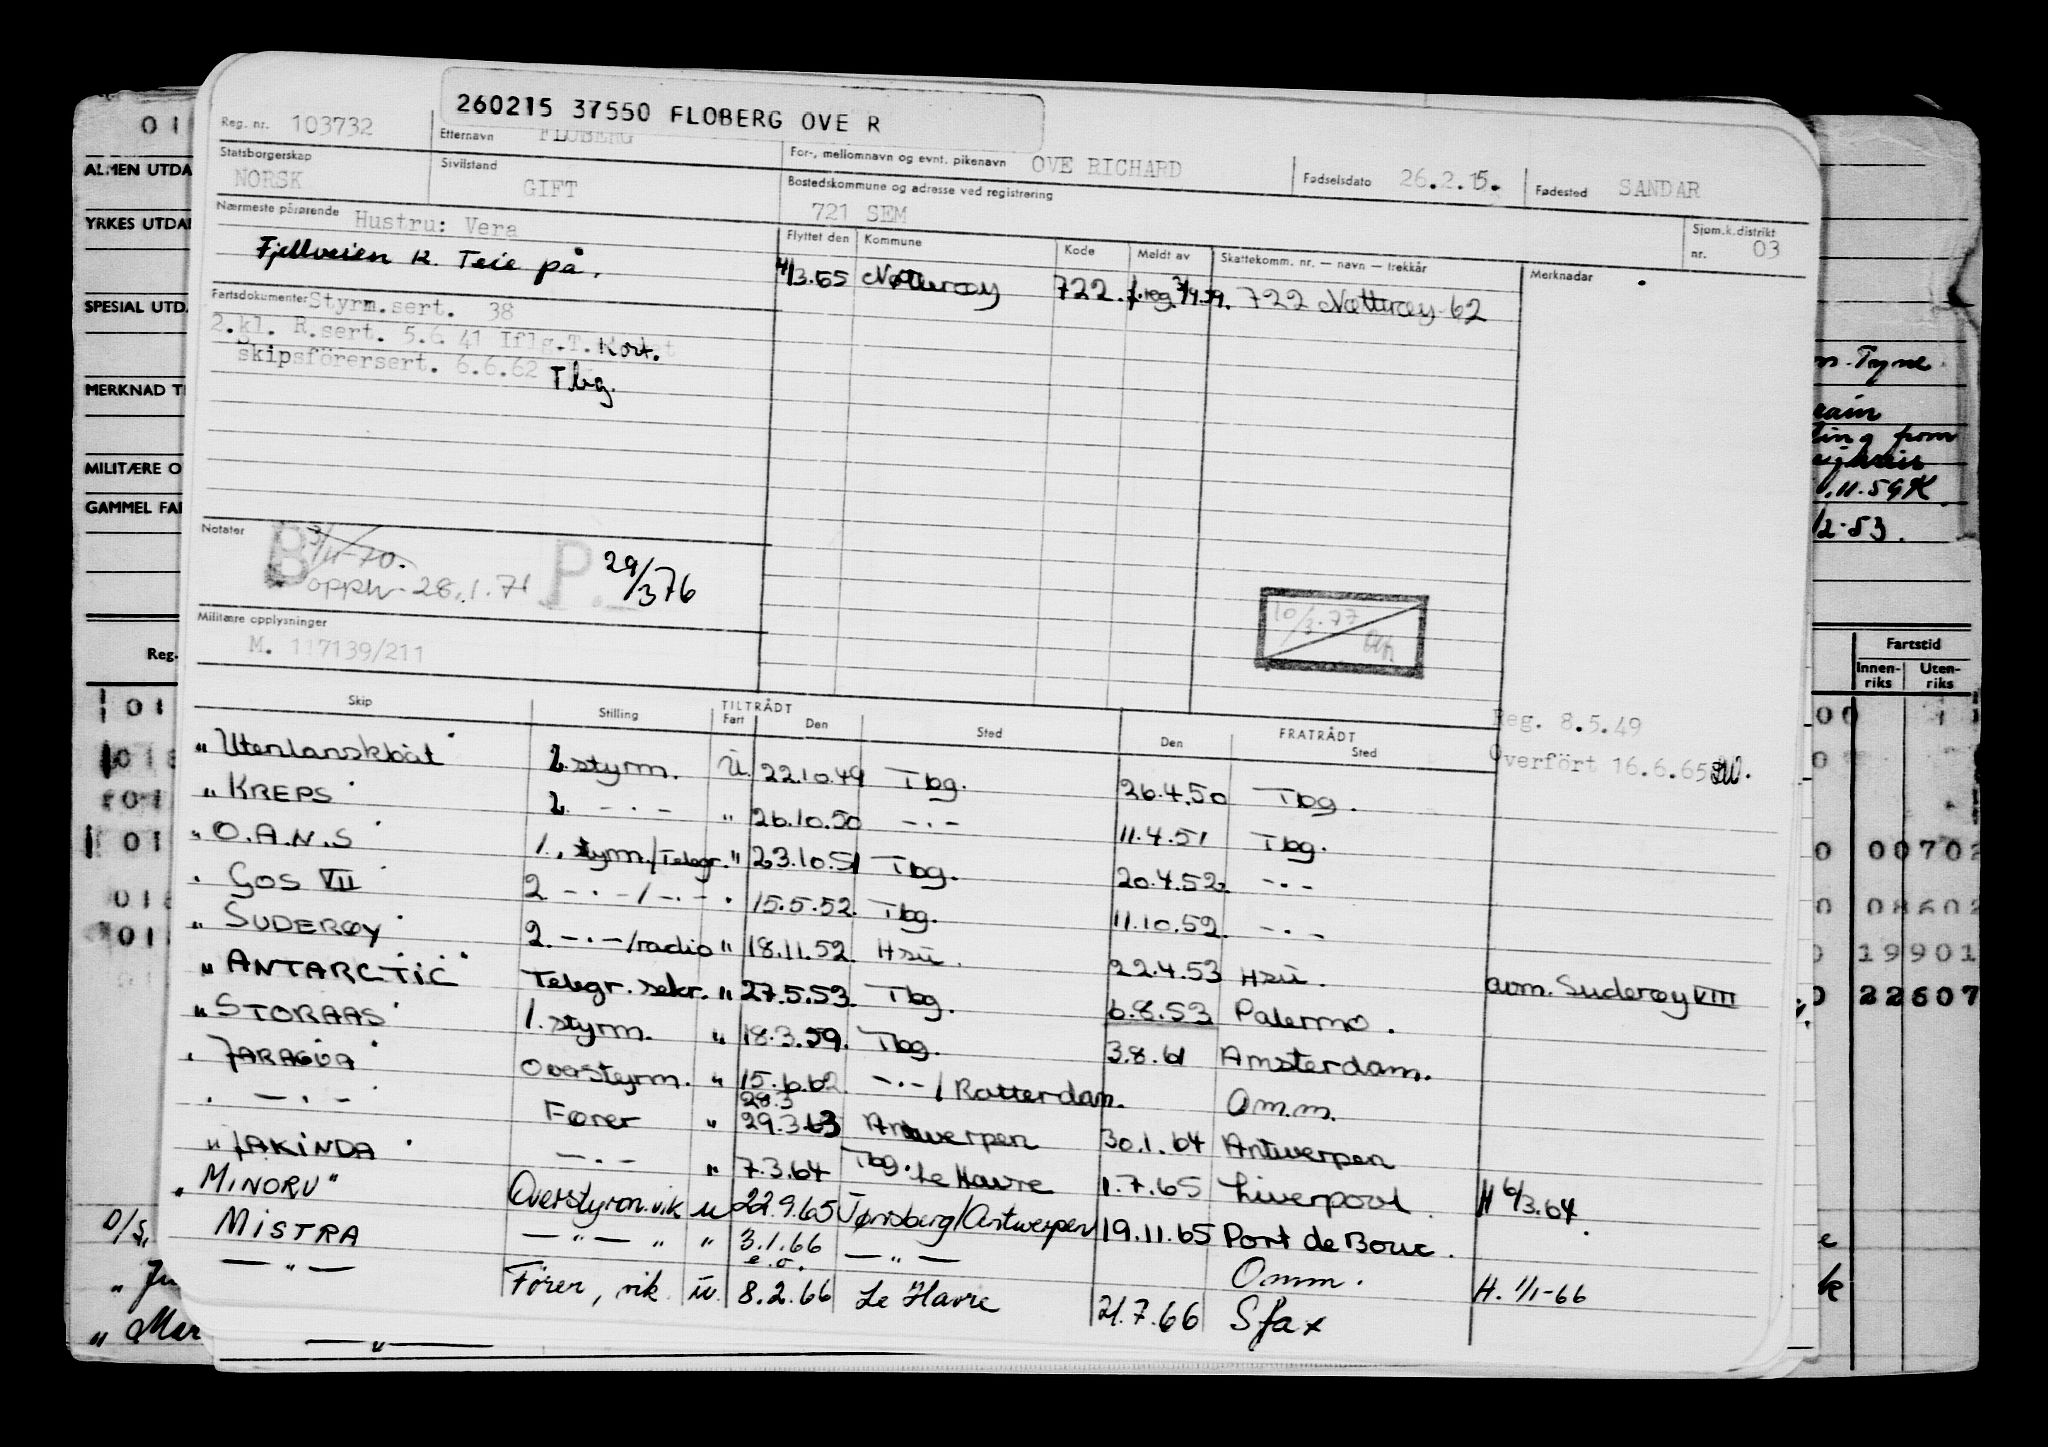 260215 37550 FLOBERG OVE R
Reg. nr. 103732
Etternavn FLOBERG
For-, mellomnavn og evnt. pikenavn OVE RICHARD
Fødselsdato 26.2.15.
Fødested SANDAR
Statsborgerskap NORSK
Sivilstand GIFT
Bostedskommune og adresse ved registrering
721 SEM
Sjøm.k.distrikt nr. 03
Nærmeste pårørende Hustru: Vera
Fjellveien 12. Teie på.
Flyttet den Kommune Kode Meldt av Skattekomm. nr. — navn — trekkår Merknader
4/3.65 Nøtterøy 722. f.reg. 2/4.59. 722 Nøtterøy 62
Fartsdokumenter Styrm.sert. 38
2.kl. R.sert. 5.6 41 Iflg.T. Kort.
skipsförersert. 6.6.62 Tbg.
Notater
B 3/11-70.
opph- 28.1.71 P. 29/3 76
10/3.77
Militære opplysninger
M. 117139/211
Reg. 8.5.49
Overfört 16.6.65
Skip Stilling TILTRÅDT Fart Den Sted FRATRÅDT Den Sted
"Utenlanskbåt" 2.styrm. U. 22.10.49 Tbg. 26.4.50 Tbg.
"KREPS" 2. - . - " 26.10.50 - . - 11.4.51 Tbg.
"O.A.N.S" 1. styrm./Telegr. " 23.10.51 Tbg. 20.4.52. - . -
" GOS VII 2 - . - / - . - " 15.5.52. Tbg. 11.10.52. - . -
"SUDERØY" 2. - . - /radio " 18.11.52. Hsu. 22.4.53 Hsu. avm. Suderøy VIII
"ANTARCTIC" Telegr. sekr. " 27.5.53. Tbg. 6.8.53 Palermo.
"STORAAS" 1. styrm. " 18.3.59. Tbg. 3.8.61 Amsterdam.
"JARAGUA" Overstyrm. " 15.6.62. - . - / Rotterdam. Omm.
" - . - " Fører " 28.3 29.3.63 Antwerpen 30.1.64 Antwerpen
"JAKINDA" - . - " 7.3.64 Tbg. Le Havre 1.7.65 Liverpool. H 6/3.64
"MINORU" Overstyrm. vik u 22.9.65 Tønsberg/Antwerpen 19.11.65 Port de Bouc.
MISTRA — " — " " 3.1.66 e.o. — " — Omm. H. 1/1-66
— " — Förer, vik u. 8.2.66 Le Havre 21.7.66 Sfax
— " —
ALMEN UTDA
YRKES UTDA
SPESIAL UTD
MERKNAD T
MILITÆRE O
GAMMEL FA
Reg.
Tyne
ing from
.11.59
12.53.
Fartstid
Innen-riks Uten-riks
0 00702
0 08602
0 19901
0 22607
D/S.